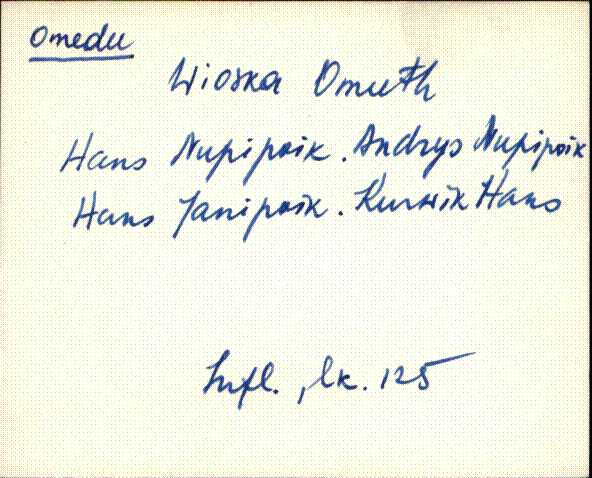 Omedu
Wioska Omuth
Hans Nupipoik. Andrys Nupipoik
Hans Janipoik. Kurwik Hans
Infl., lk. 125